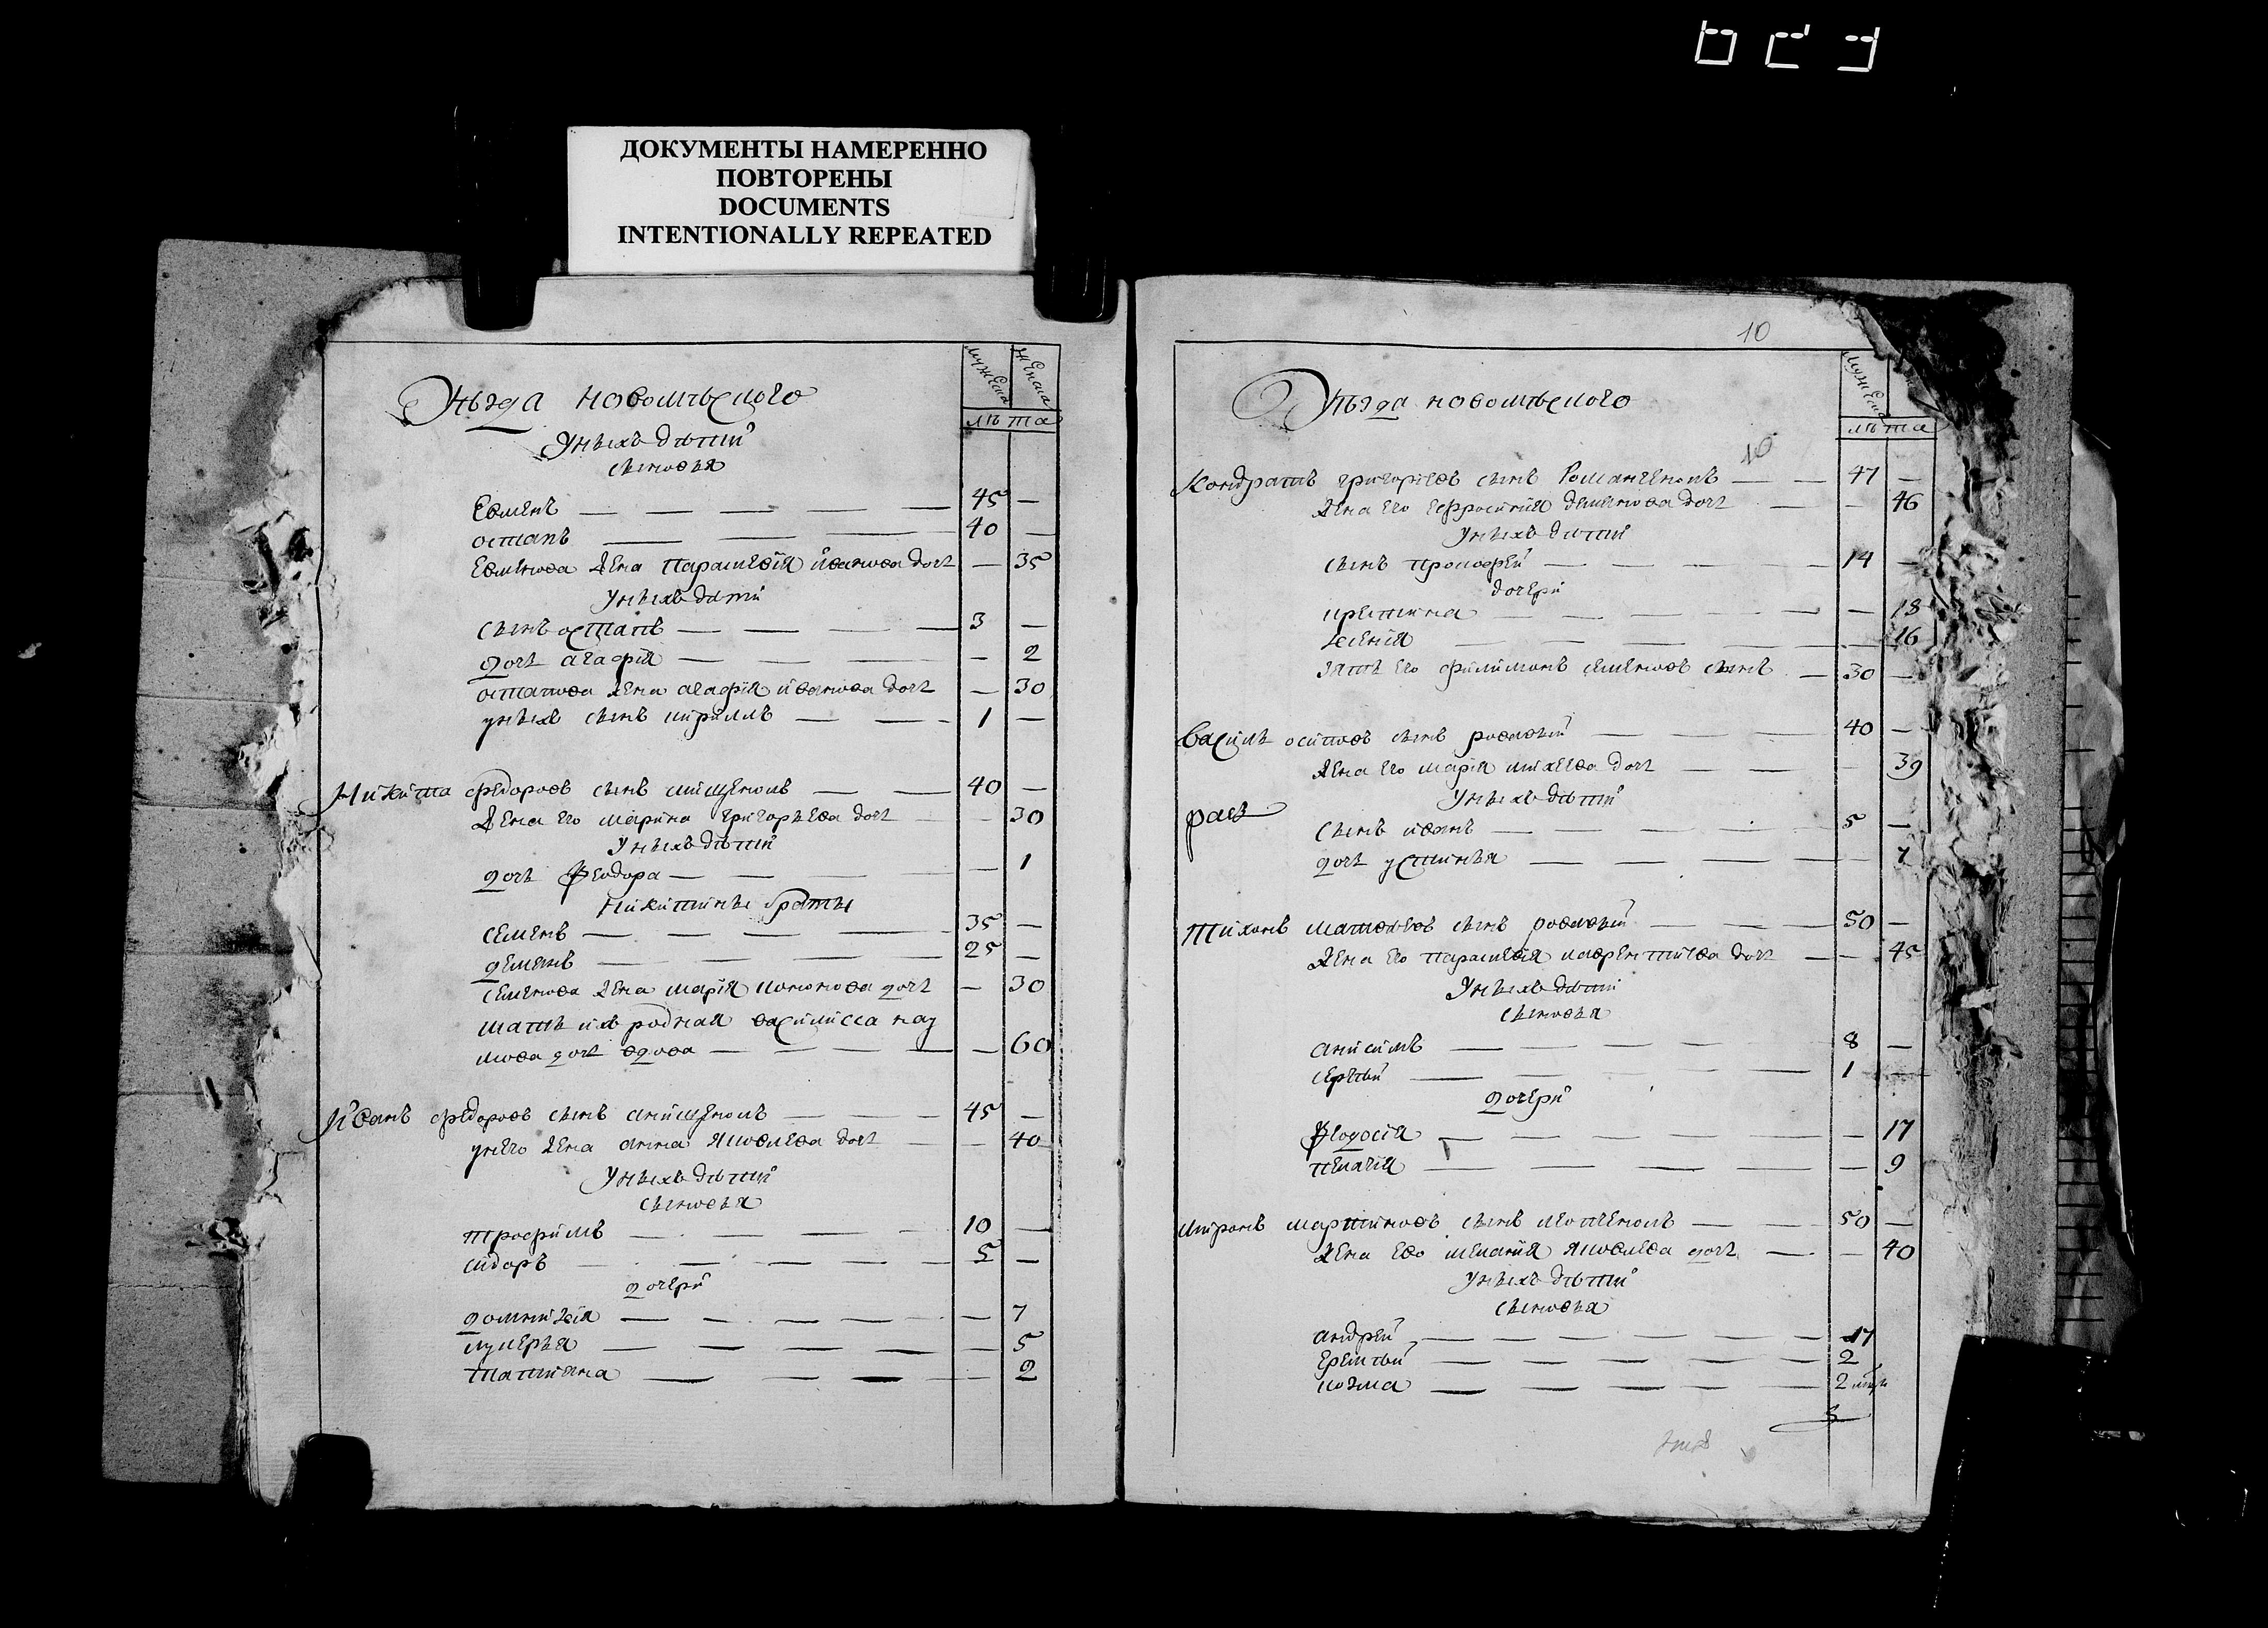 ДОКУМЕНТЫ НАМЕРЕННО
ПОВТОРЕНЫ
DOCUMENTS
INTENTIONALLY REPEATED
мужеска женска
лѣта
Уѣзда новомѣского
Унихъ дѣтий
сыновья
Евменъ 45 —
остапъ 40 —
Евменова жена парасковія иванова дочь — 35
Унихъ дети
сынъ остапъ 3 —
дочь агафія — 2
остапова жена агафія иванова дочь — 30
унихъ сынъ кирилъ 1 —
Никита федоровъ сынъ 40 —
жена его марина григорьева дочь — 30
Унихъ дѣтий
дочь феодора — 1
Никитины браты
семенъ 35 —
демянъ 25 —
семенова жена марія кононова дочь — 30
мать ихъ родная василисса нау
мова дочь вдова — 60
Иванъ федоровъ сынъ онищенокъ 45 —
унего жена анна яковлева дочь — 40
Унихъ дѣтий
сыновья
трофимъ 10 —
сидоръ 5 —
дочери
домникія — 7
лукерья — 5
татияна — 2
10
мужеска
лѣта
Уѣзда новомѣского
10
Кондратъ григоріевъ сынъ Романченокъ 47 —
жена его ефросинія дементова дочь — 46
Унихъ дѣтий
сынъ прокофей 14 —
дочери
кристина — 18
ксенія — 16
зять его филимонъ семеновъ сынъ 30 —
Василь осиповъ сынъ ровловый 40 —
жена его марія михеева дочь — 39
Унихъ дѣтий
сынъ иванъ 5 —
дочь устинья — 7
Тихонъ матвѣевъ сынъ ровловый 50 —
жена его парасковія лаврентиева дочь — 45
Унихъ дѣтий
сыновья
анисимъ 8 —
сергѣй 1 —
дочери
феодосія — 17
пелагія — 9
миронъ мартиновъ сынъ 50 —
жена ево меланія яковлева дочь — 40
Унихъ дѣтий
сыновья
андрей 17
еремѣй 2
козма 2